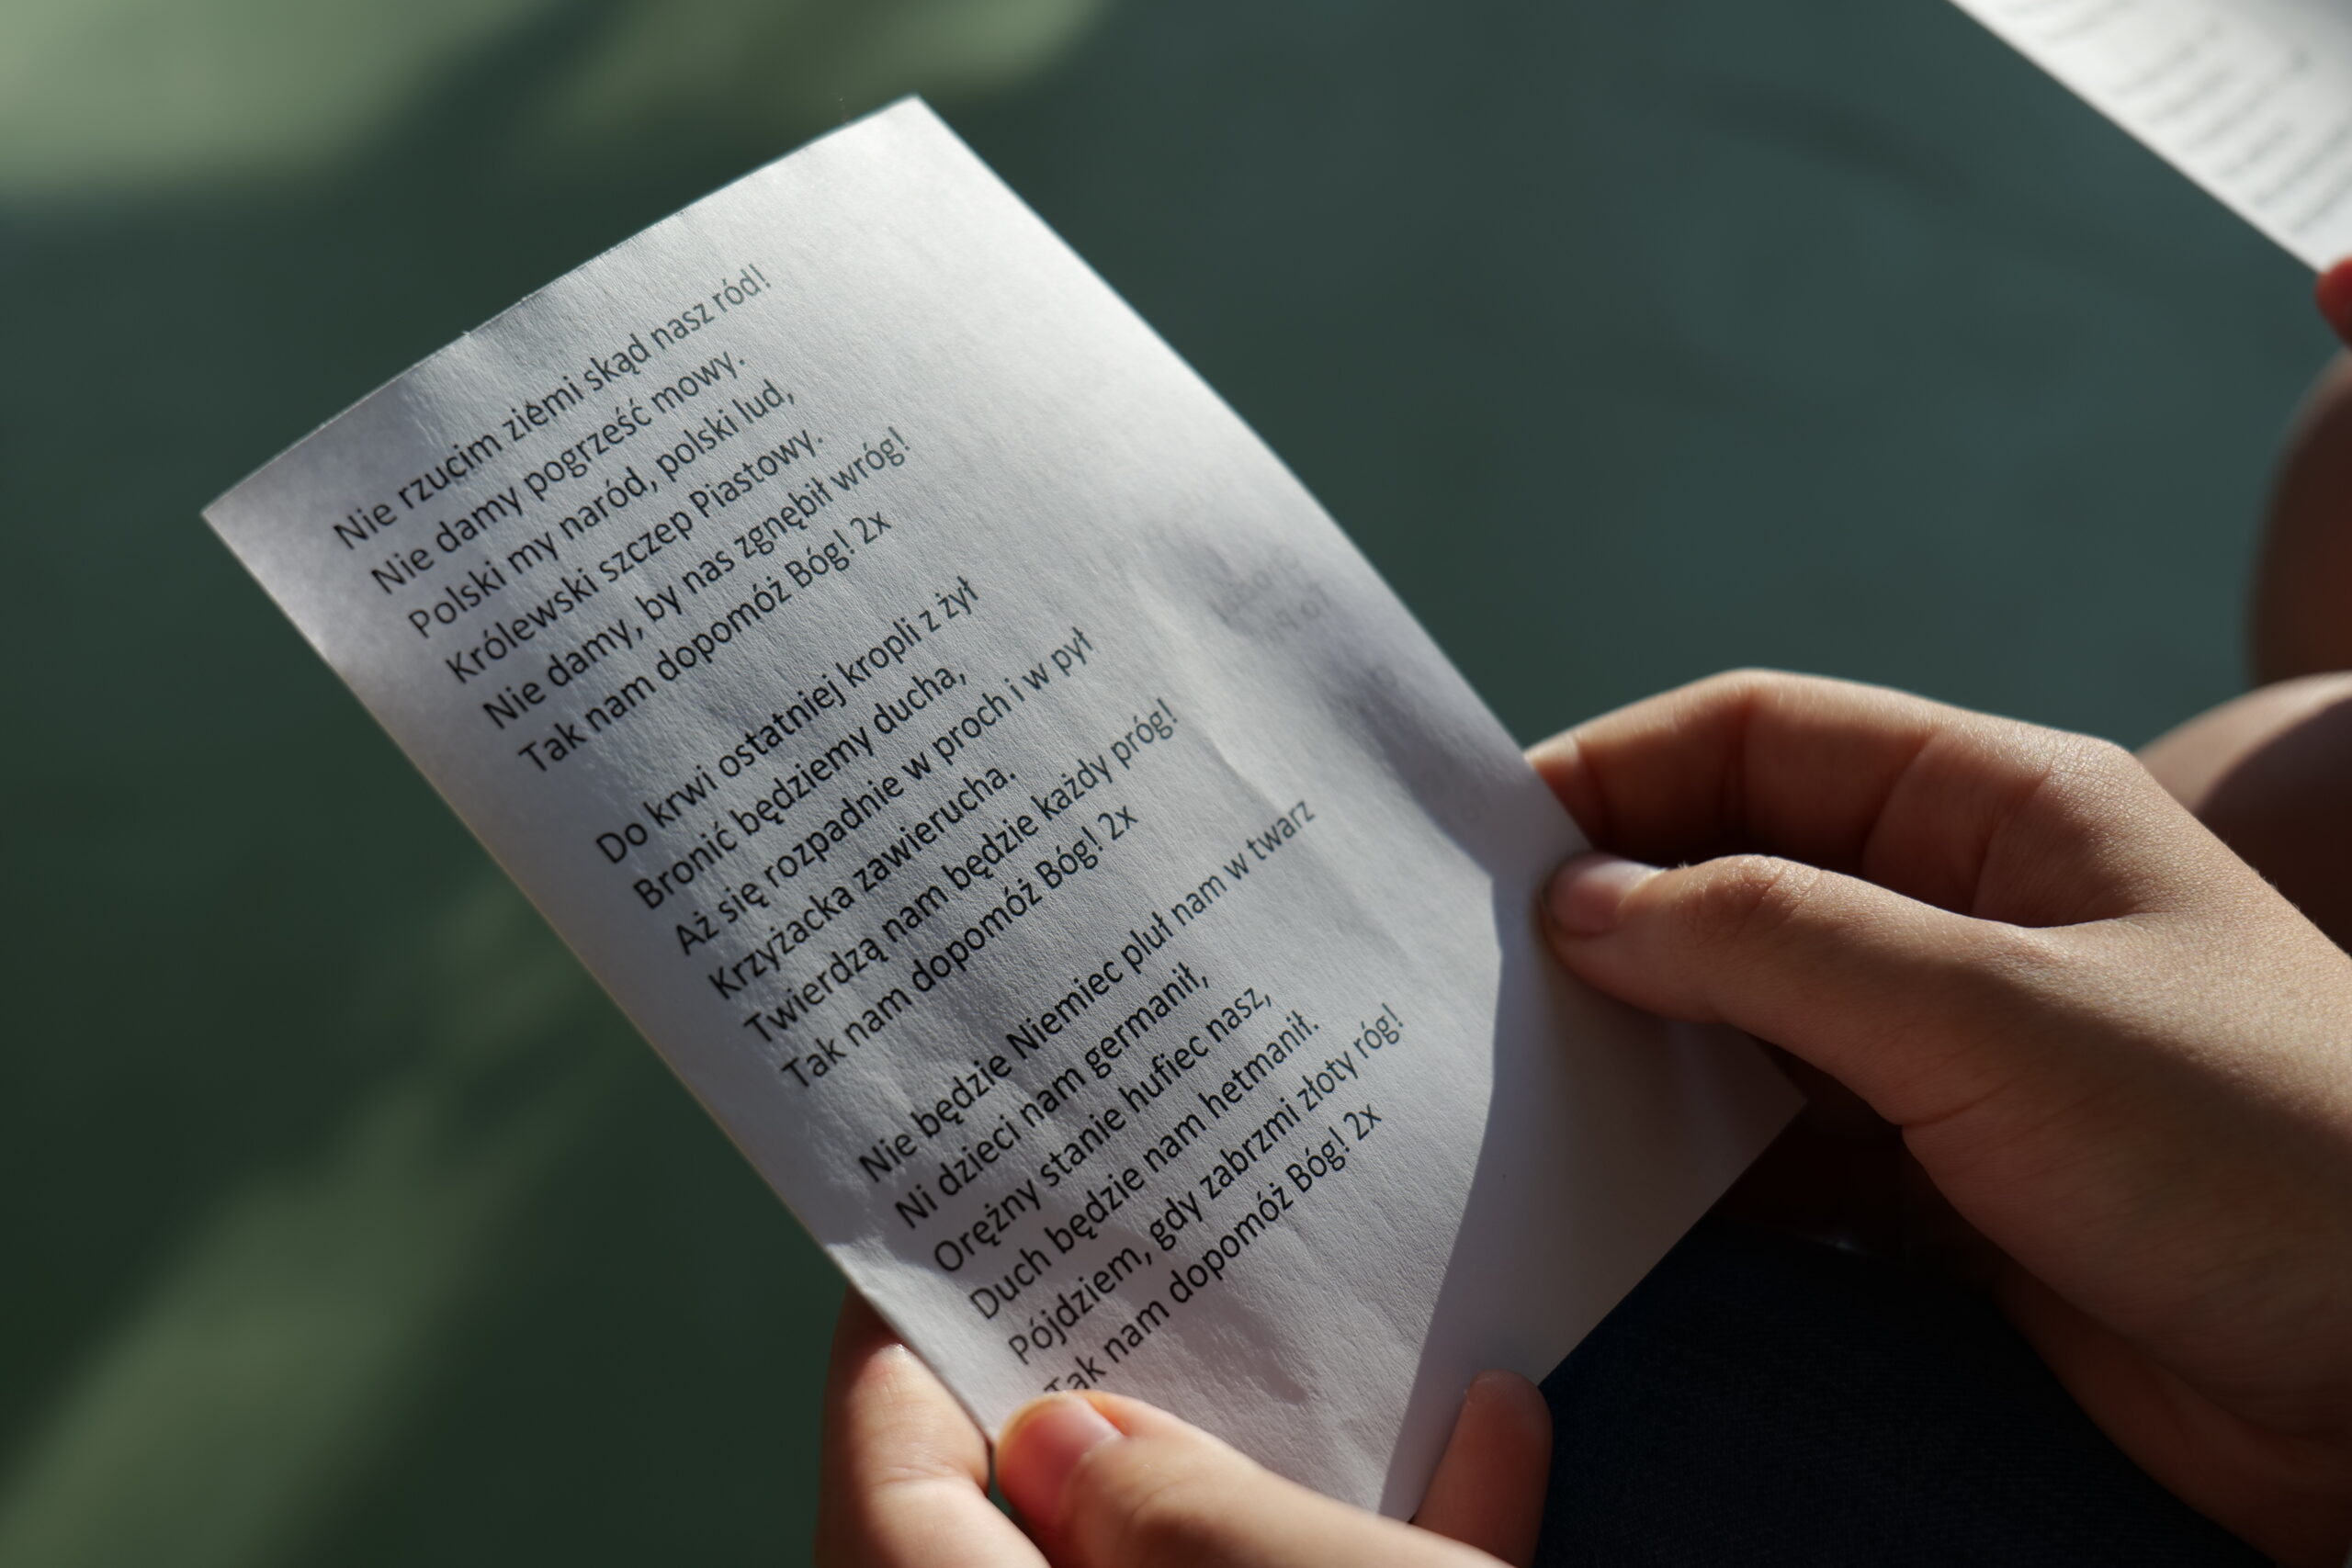 Nie rzucim ziemi skąd nasz ród!
Nie damy pogrześć mowy.
Polski my naród, polski lud,
Królewski szczep Piastowy.
Nie damy, by nas zgnębił wróg!
Tak nam dopomóż Bóg! 2x
Do krwi ostatniej kropli z żył
Bronić będziemy ducha,
Aż się rozpadnie w proch i w pył
Krzyżacka zawierucha.
Twierdzą nam będzie każdy próg!
Tak nam dopomóż Bóg! 2x
Nie będzie Niemiec pluł nam w twarz
Ni dzieci nam germanił,
Orężny stanie hufiec nasz,
Duch będzie nam hetmanił.
Pójdziem, gdy zabrzmi złoty róg!
Tak nam dopomóż Bóg! 2x